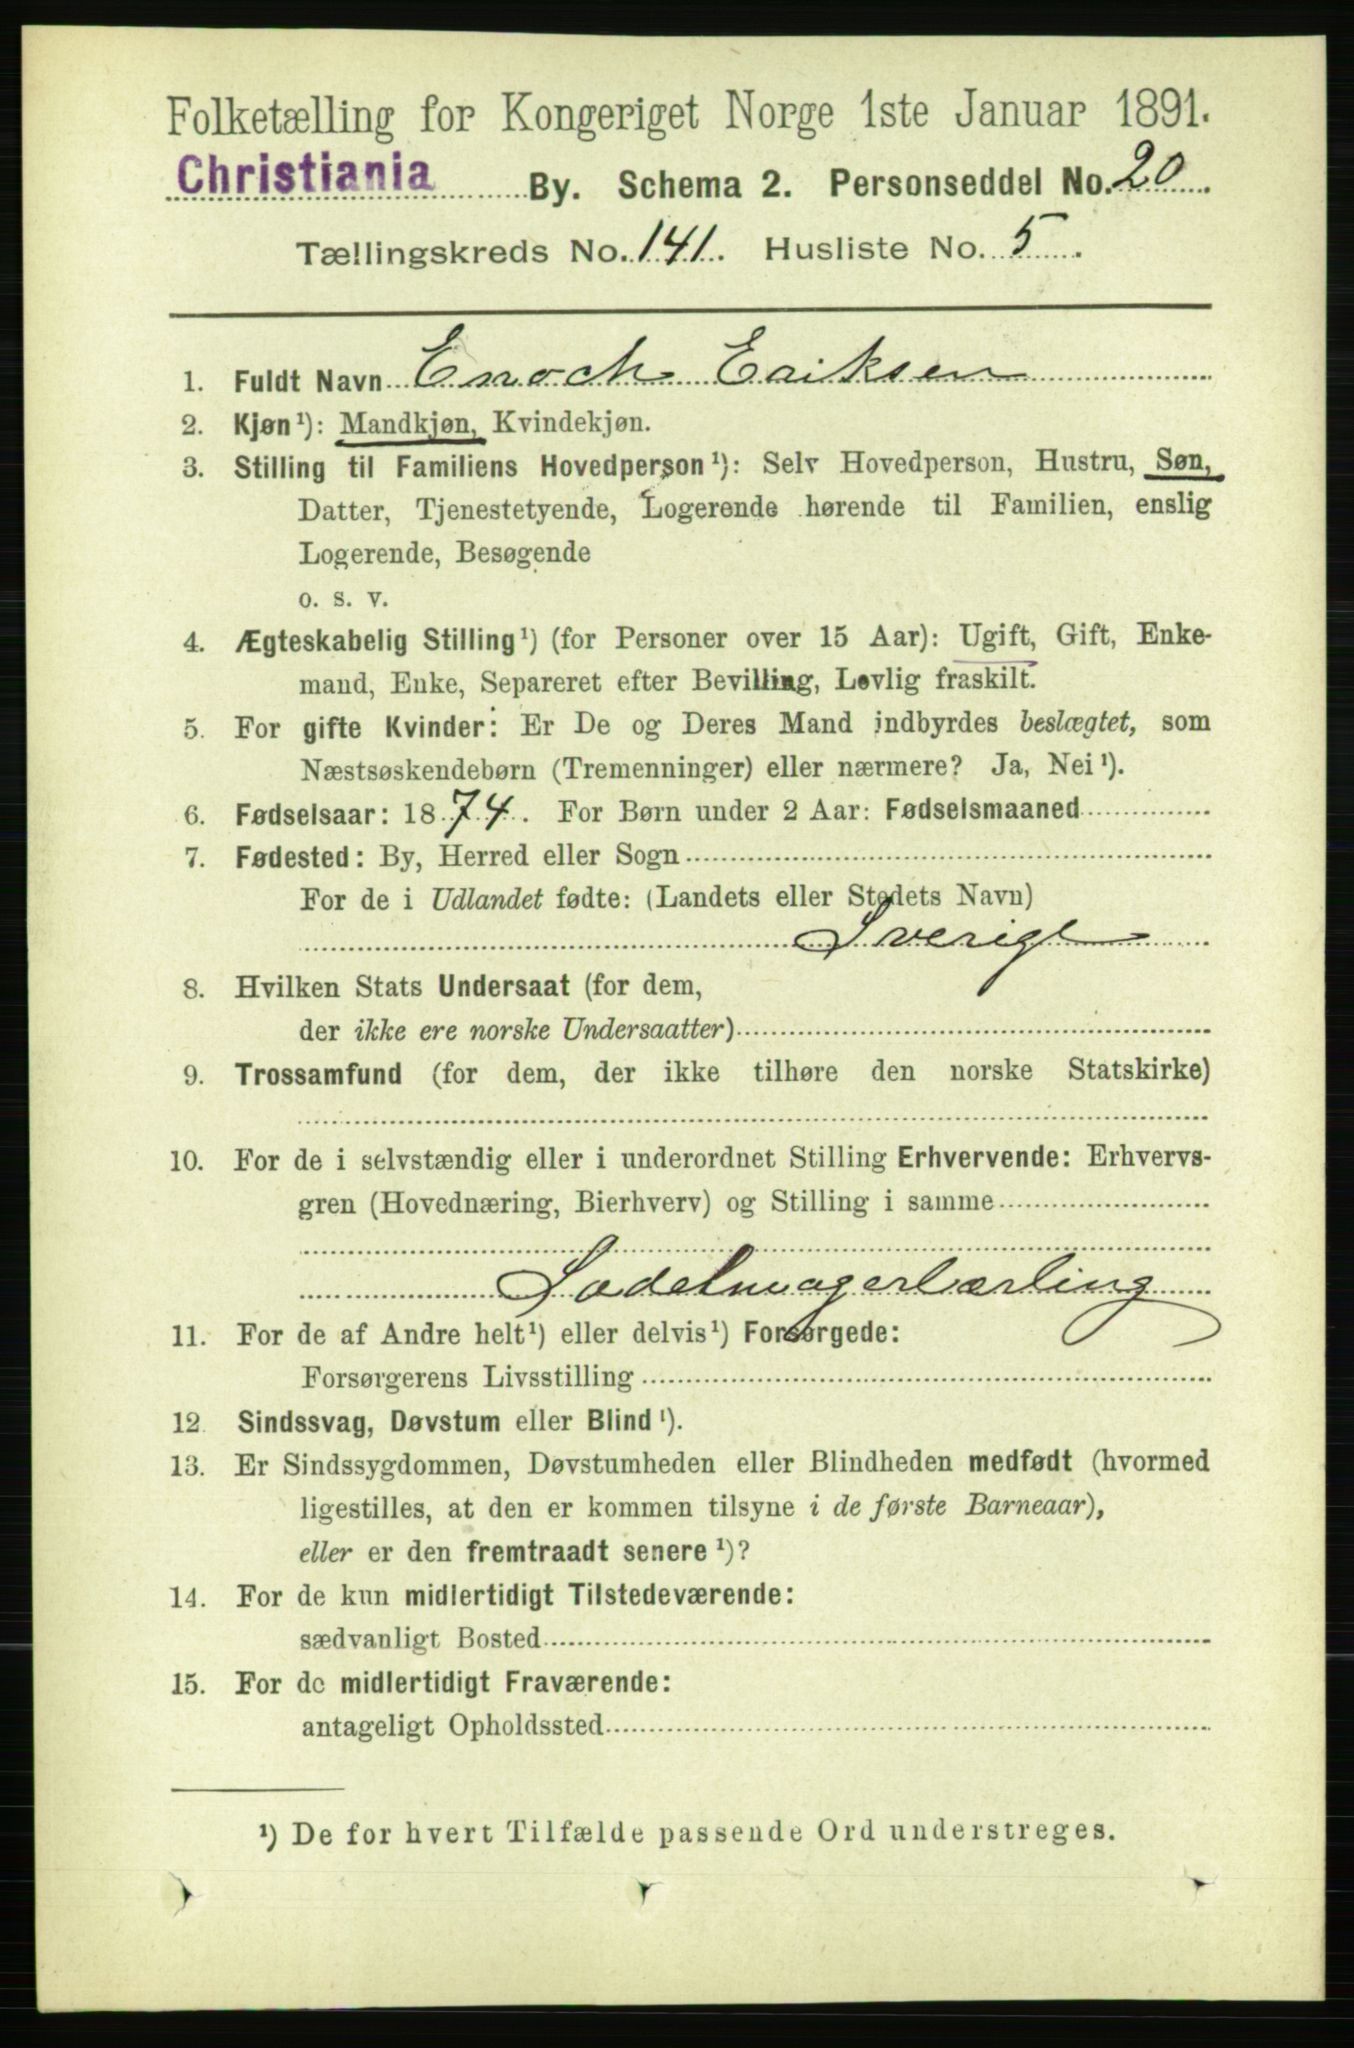 Folketælling for Kongeriget Norge 1ste Januar 1891.
Christiania By. Schema 2. Personseddel No. 20
Tællingskreds No. 141. Husliste No. 5.
1. Fuldt Navn Enoch Eriksen
2. Kjøn¹): Mandkjøn, Kvindekjøn.
3. Stilling til Familiens Hovedperson¹): Selv Hovedperson, Hustru, Søn,
Datter, Tjenestetyende, Logerende hørende til Familien, enslig
Logerende, Besøgende
o. s. v.
4. Ægteskabelig Stilling¹) (for Personer over 15 Aar): Ugift, Gift, Enke-
mand, Enke, Separeret efter Bevilling, Lovlig fraskilt.
5. For gifte Kvinder: Er De og Deres Mand indbyrdes beslægtet, som
Næstsøskendebørn (Tremenninger) eller nærmere? Ja, Nei¹).
6. Fødselsaar: 1874. For Børn under 2 Aar: Fødselsmaaned
7. Fødested: By, Herred eller Sogn
For de i Udlandet fødte: (Landets eller Stedets Navn)
Sverige
8. Hvilken Stats Undersaat (for dem,
der ikke ere norske Undersaatter)
9. Trossamfund (for dem, der ikke tilhøre den norske Statskirke)
10. For de i selvstændig eller i underordnet Stilling Erhvervende: Erhvervs-
gren (Hovednæring, Bierhverv) og Stilling i samme
Sadelmagerlærling
11. For de af Andre helt¹) eller delvis¹) Forsørgede:
Forsørgerens Livsstilling
12. Sindssvag, Døvstum eller Blind¹).
13. Er Sindssygdommen, Døvstumheden eller Blindheden medfødt (hvormed
ligestilles, at den er kommen tilsyne i de første Barneaar),
eller er den fremtraadt senere¹)?
14. For de kun midlertidigt Tilstedeværende:
sædvanligt Bosted
15. For de midlertidigt Fraværende:
antageligt Opholdssted
¹) De for hvert Tilfælde passende Ord understreges.